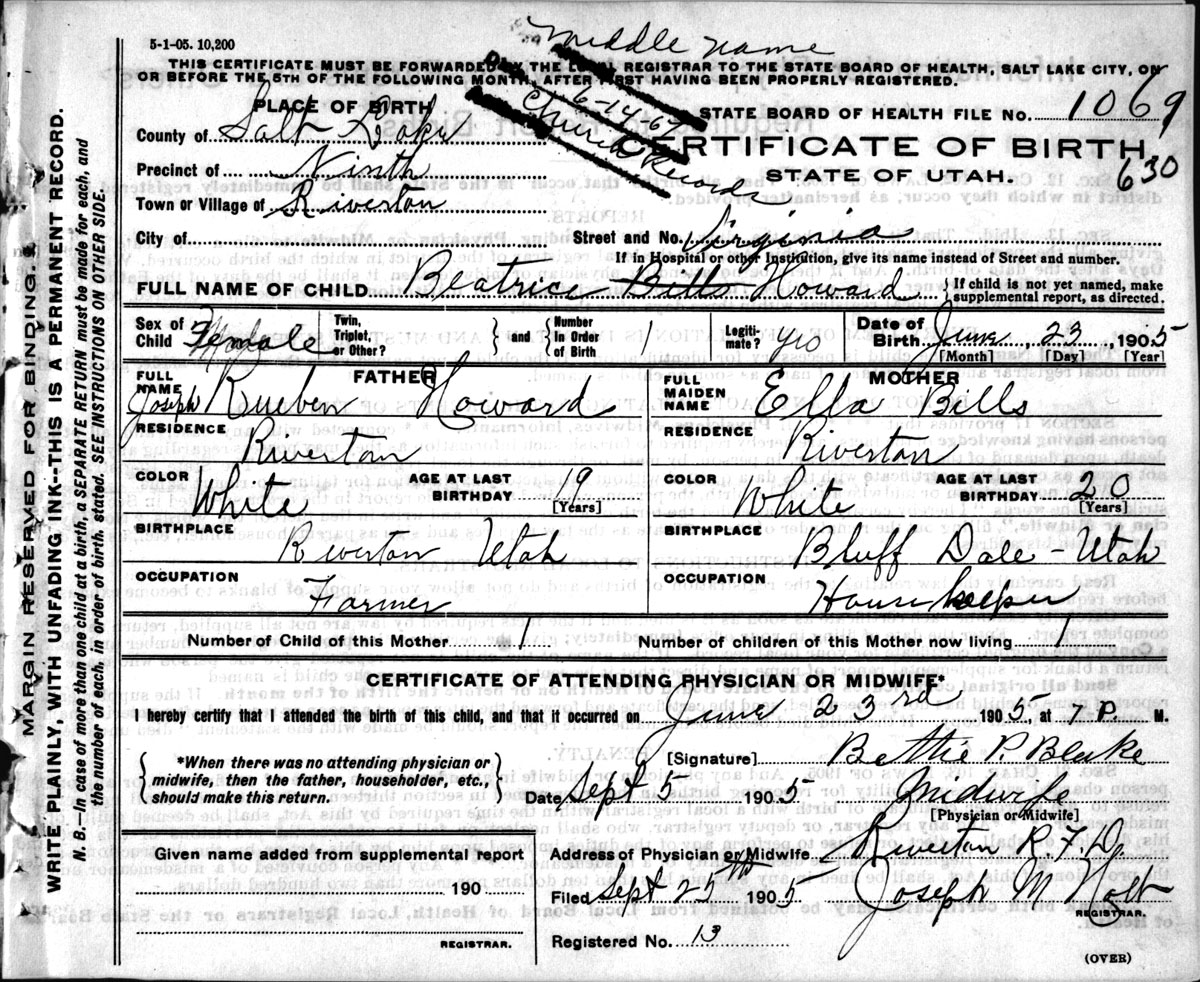 5-1-05. 10,200
middle name
THIS CERTIFICATE MUST BE FORWARDED BY THE LOCAL REGISTRAR TO THE STATE BOARD OF HEALTH, SALT LAKE CITY, ON
OR BEFORE THE 5TH OF THE FOLLOWING MONTH, AFTER FIRST HAVING BEEN PROPERLY REGISTERED.
6-14-67
Church Records
PLACE OF BIRTH
STATE BOARD OF HEALTH FILE NO. 1069
County of Salt Lake
CERTIFICATE OF BIRTH
630
Precinct of Ninth
STATE OF UTAH.
Town or Village of Riverton
City of
Street and No. Virginia
If in Hospital or other Institution, give its name instead of Street and number.
FULL NAME OF CHILD Beatrice Bills Howard
If child is not yet named, make supplemental report, as directed.
Sex of Child Female
Twin, Triplet, or Other?
and
Number In Order of Birth 1
Legiti-mate? yes
Date of Birth June 23, 1905
[Month] [Day] [Year]
FATHER
FULL NAME Joseph Rueben Howard
RESIDENCE
Riverton
COLOR White
AGE AT LAST BIRTHDAY 19
[Years]
BIRTHPLACE
Riverton Utah
OCCUPATION
Farmer
MOTHER
FULL MAIDEN NAME Ella Bills
RESIDENCE
Riverton
COLOR White
AGE AT LAST BIRTHDAY 20
[Years]
BIRTHPLACE
Bluff Dale - Utah
OCCUPATION
House keeper
Number of Child of this Mother 1
Number of children of this Mother now living 1
CERTIFICATE OF ATTENDING PHYSICIAN OR MIDWIFE*
I hereby certify that I attended the birth of this child, and that it occurred on June 23rd 1905, at 7 P. M.
*When there was no attending physician or
midwife, then the father, householder, etc.,
should make this return.
[Signature] Bettie P. Blake
Date Sept 5 1905
Midwife
[Physician or Midwife]
Given name added from supplemental report
190
REGISTRAR.
Address of Physician or Midwife Riverton R.F.D.
Filed Sept 25th 1905
Joseph M Holt
REGISTRAR.
Registered No. 13
(OVER)
MARGIN RESERVED FOR BINDING.
WRITE PLAINLY, WITH UNFADING INK--THIS IS A PERMANENT RECORD.
N. B.—In case of more than one child at a birth, a SEPARATE RETURN must be made for each, and
the number of each, in order of birth, stated. SEE INSTRUCTIONS ON OTHER SIDE.